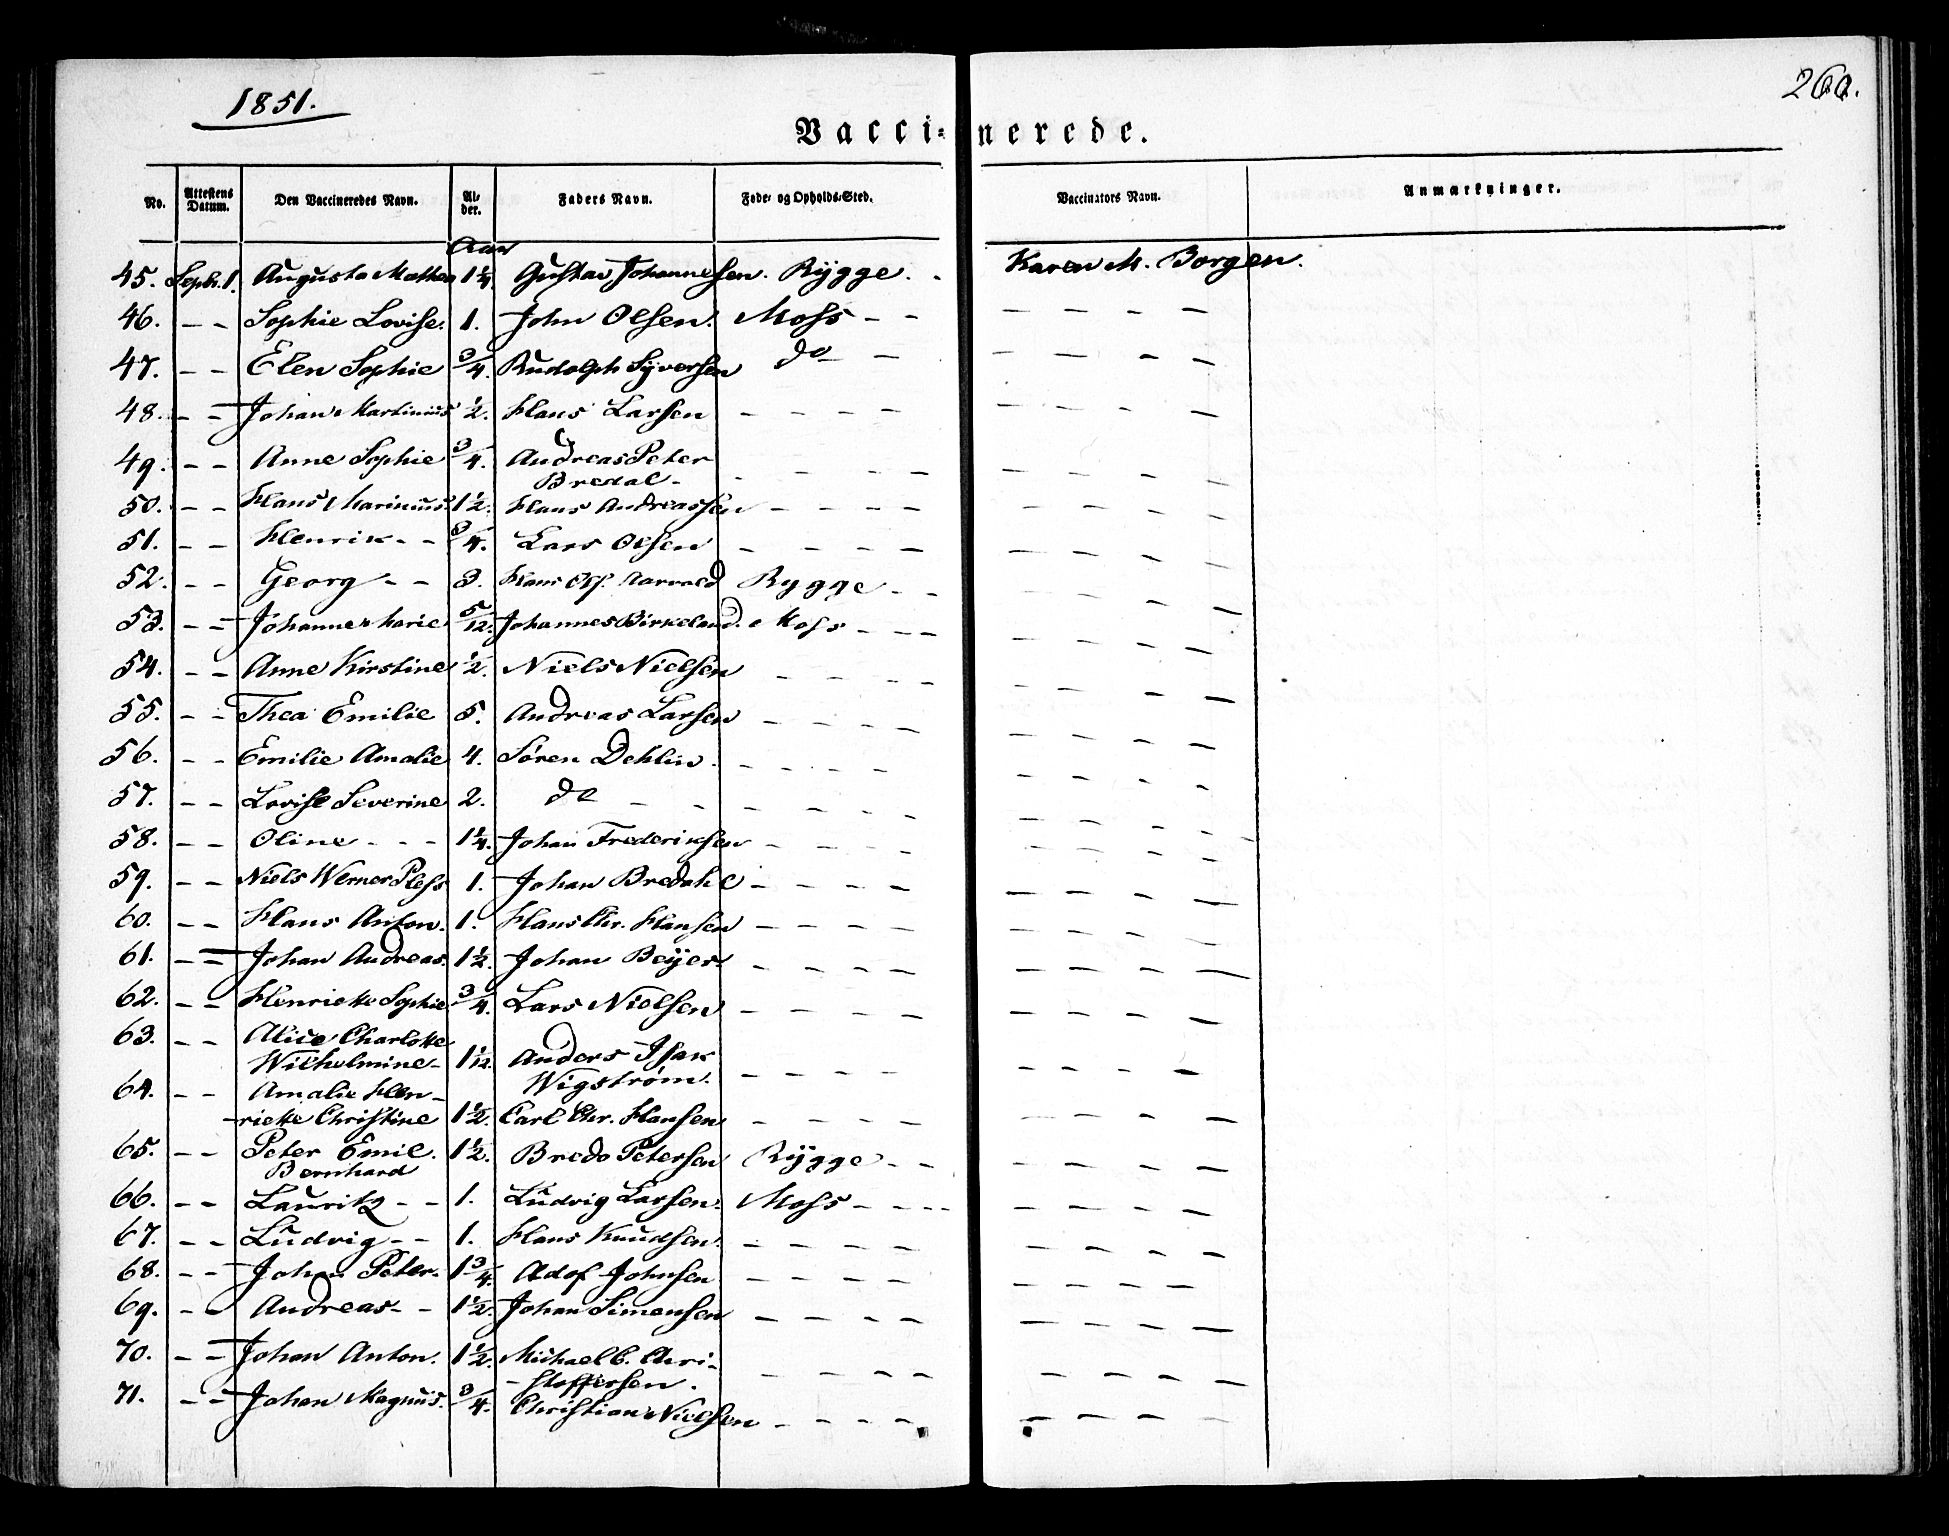 1851.
260.
Vacci= nerede.
No. Attestens Datum. Den Vaccineredes Navn. Al- der. Faders Navn. Føde- og Opholds-Sted. Vaccinators Navn. Anmærkninger.
Aar
45. Septr. 1. Augusta Mathea 1 1/4 Gustav Johannesen. Rygge. Karen M. Borgen.
46. – – Sophie Lovise. 1. John Olsen. Moss – – – – – –
47. – – Elen Sophie 3/4. Rudolph Syversen do – – – – –
48. – – Johan Martinius 1/2. Hans Larsen – – – – – – – –
49. – – Anne Sophie 3/4. Andreas Peter
Bredal – – – – – – – – –
50. – – Hans Marinius. 1 1/2. Hans Andreassen – – – – – – – –
51. – – Henrik – – 3/4. Lars Olsen – – – – – – – –
52. – – Georg – – 3. Hans Rygge – – – – – –
53. – – Johanne Marie 5/12. Johannes Birkeland. Moss – – – – – – –
54. – – Anne Kirstine 1/2. Niels Nielsen – – – – – – – –
55. – – Thea Emilie 5. Andreas Larsen – – – – – – – –
56. – – Emilie Amalie 4. Søren Dehlin. – – – – – – – –
57. – – Lovise Severine 2. do – – – – – – – – – –
58. – – Oline – – – 1 1/4. Johan Frederiksen – – – – – – – –
59. – – Niels Werner Pless 1. Johan Bredahl – – – – – – – –
60. – – Hans Anton. 1. Hans Chr. Hansen – – – – – – – –
61. – – Johan Andreas. 1 1/2. Johan Beyer. – – – – – – – –
62. – – Henriette Sophie 3/4. Lars Nielsen – – – – – – – –
63. – – Alice Charlotte
Wilhelmine – 1 1/12. Anders Isak
Wigstrøm. – – – – – – – –
64. – – Amalie Hen–
–riette Christine 1 1/2. Carl Chr. Hansen – – – – – – – –
65. – – Peter Emil. 1 1/2. Bredo Petersen Rygge – – – – – –
Bernhard
66. – – Lauritz – – 1. Ludvig Larsen. Moss – – – – – – –
67. – – Ludvig – – 1. Hans Knudsen. – – – – – – – –
68. – – Johan Peter. 1 3/4. Adof Johnsen – – – – – – – –
69. – – Andreas – – 1 1/2. Johan Simensen – – – – – – – –
70. – – Johan Anton. 1 1/2. Michael C. Chri–
–stoffersen. – – – – – – – –
71. – – Johan Magnus. 3/4. Christian Nielsen – – – – – – – –